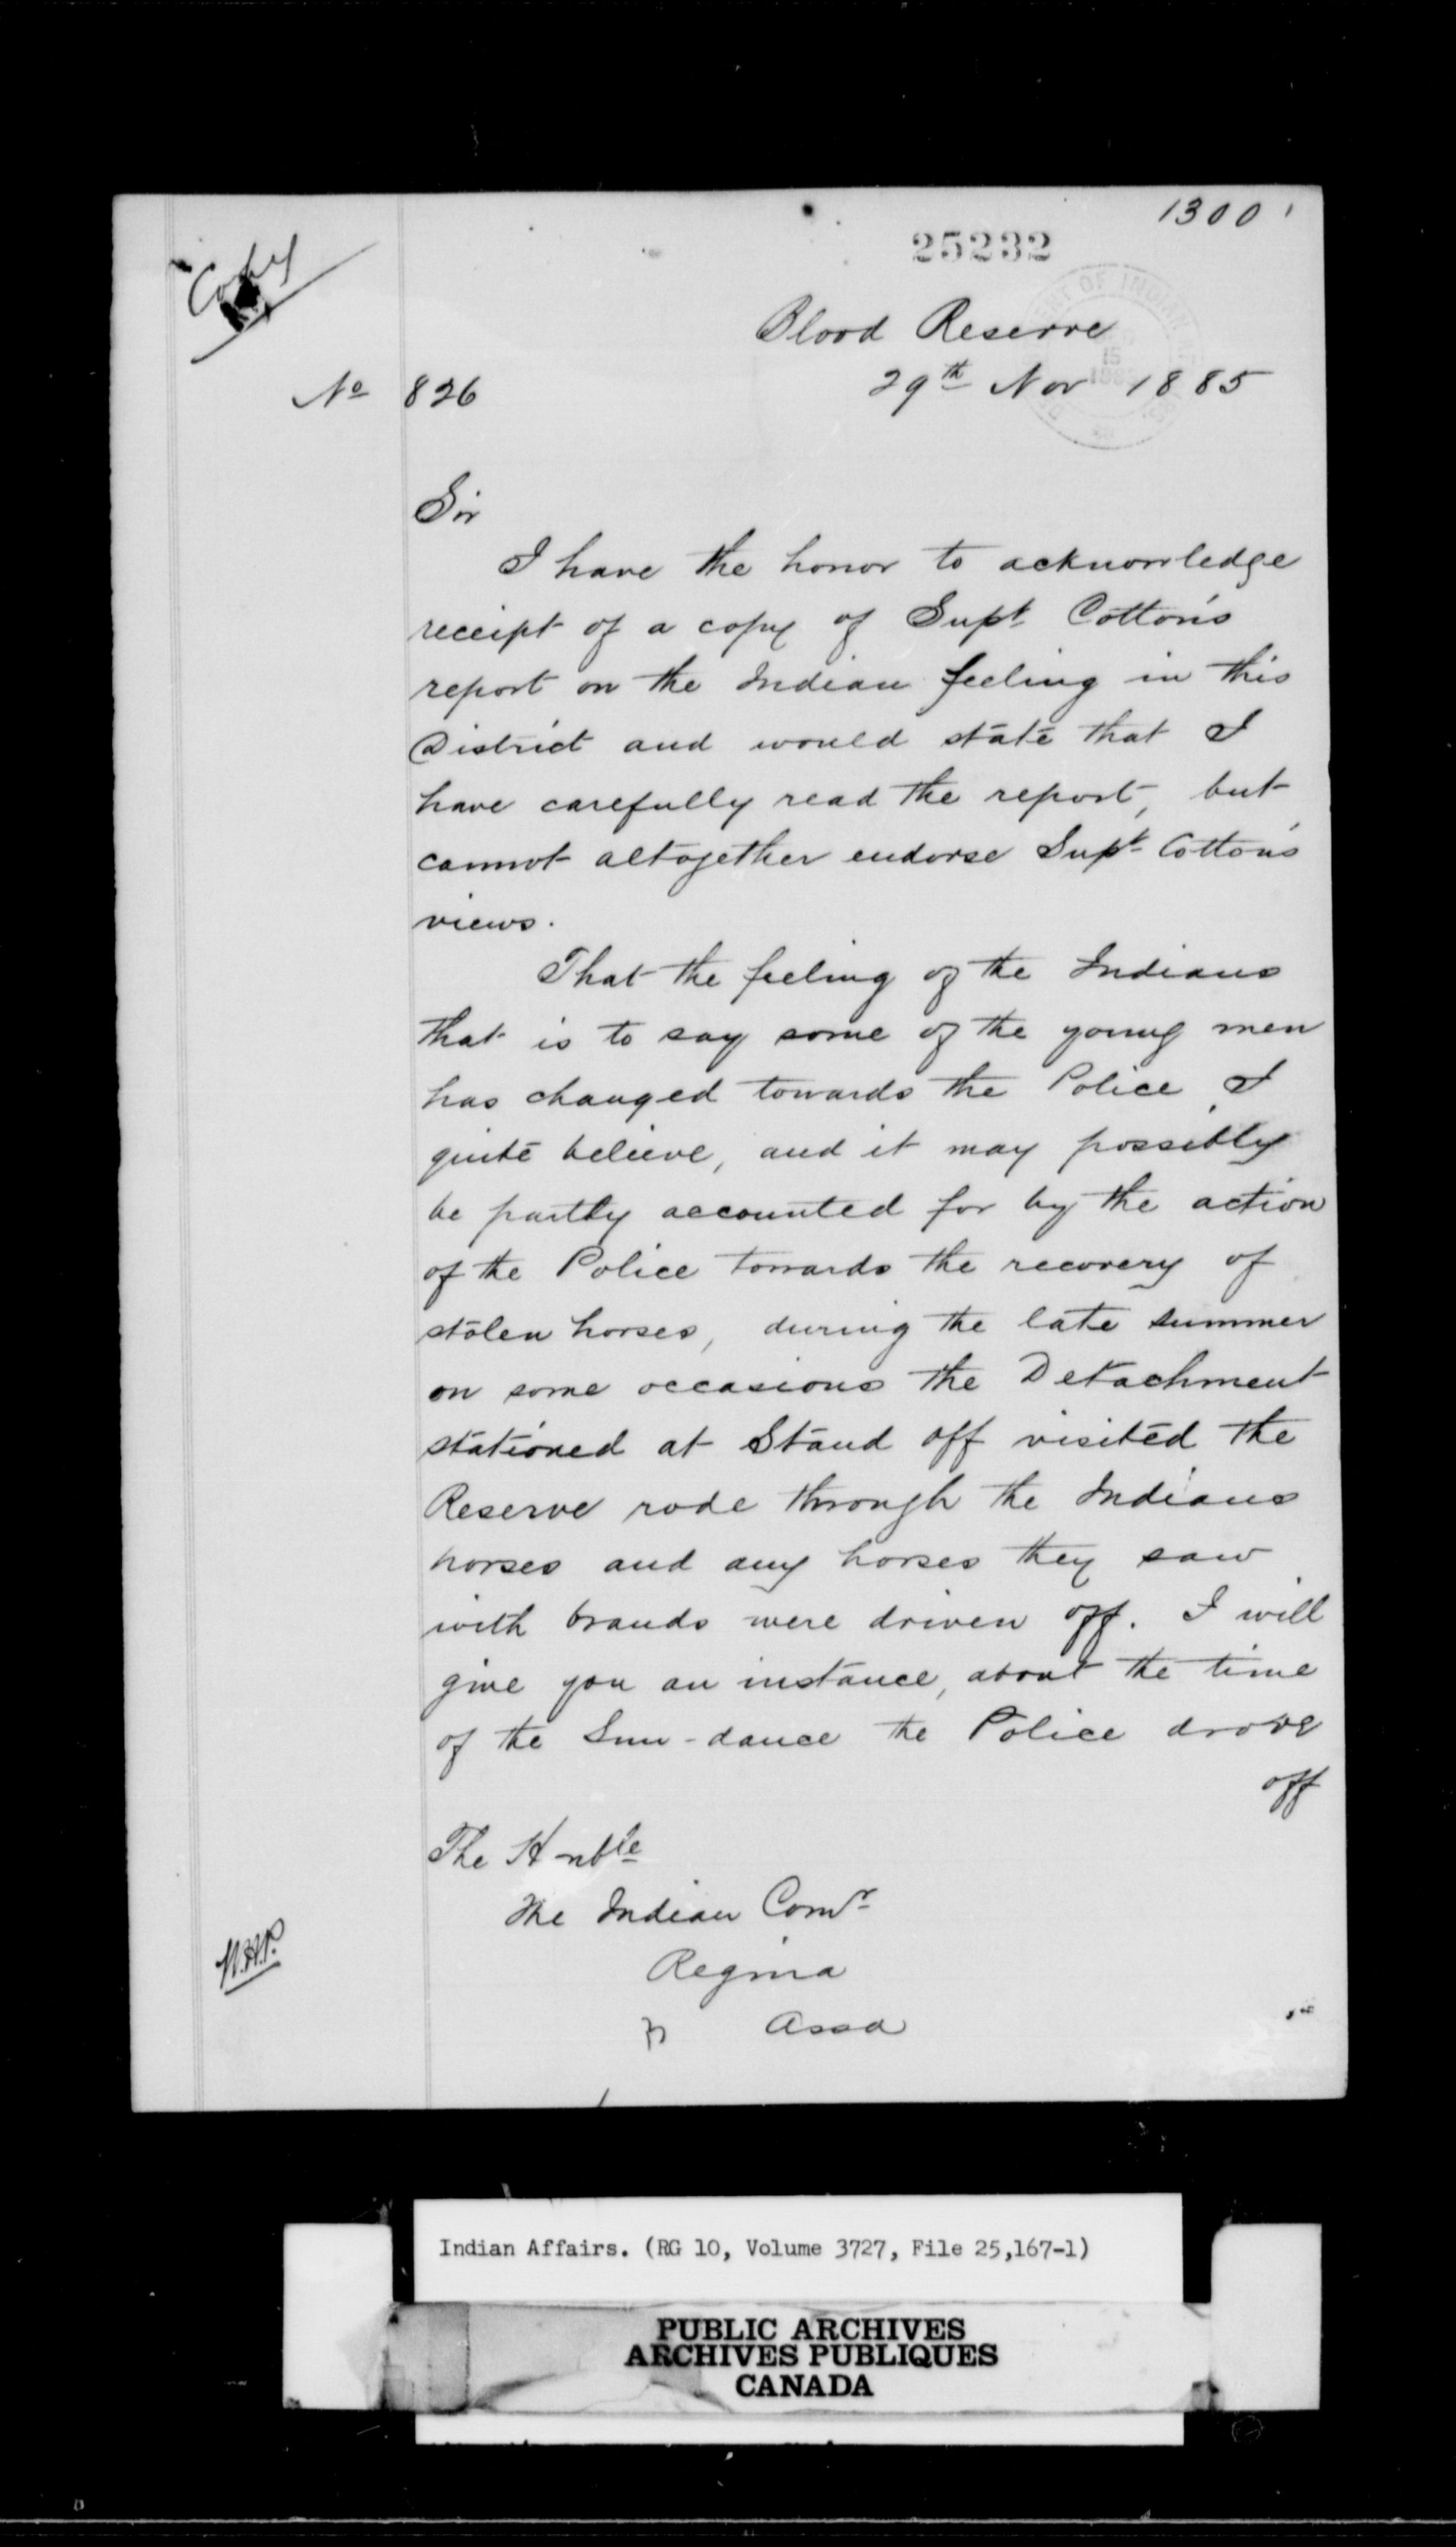 1300
25232
Copy
Blood Reserve
No 826
29th Nov 1885
Sir
I have the honor to acknowledge
receipt of a copy of Supt Cotton's
report on the Indian feeling in this
District and would state that I
have carefully read the report, but
cannot altogether endorse Supt Cotton's
views.
That the feeling of the Indians
that is to say some of the young men
has changed towards the Police, I
quite believe, and it may possibly
be partly accounted for by the action
of the Police towards the recovery of
stolen horses, during the late summer
on some occasions the Detachment
stationed at Stand off visited the
Reserve rode through the Indians
horses and any horses they saw
with brands were driven off. I will
give you an instance, about the time
of the Sun-dance the Police drove
off
The Honble
The Indian Comr
Regina
Assa
Indian Affairs. (RG 10, Volume 3727, File 25,167-1)
PUBLIC ARCHIVES
ARCHIVES PUBLIQUES
CANADA